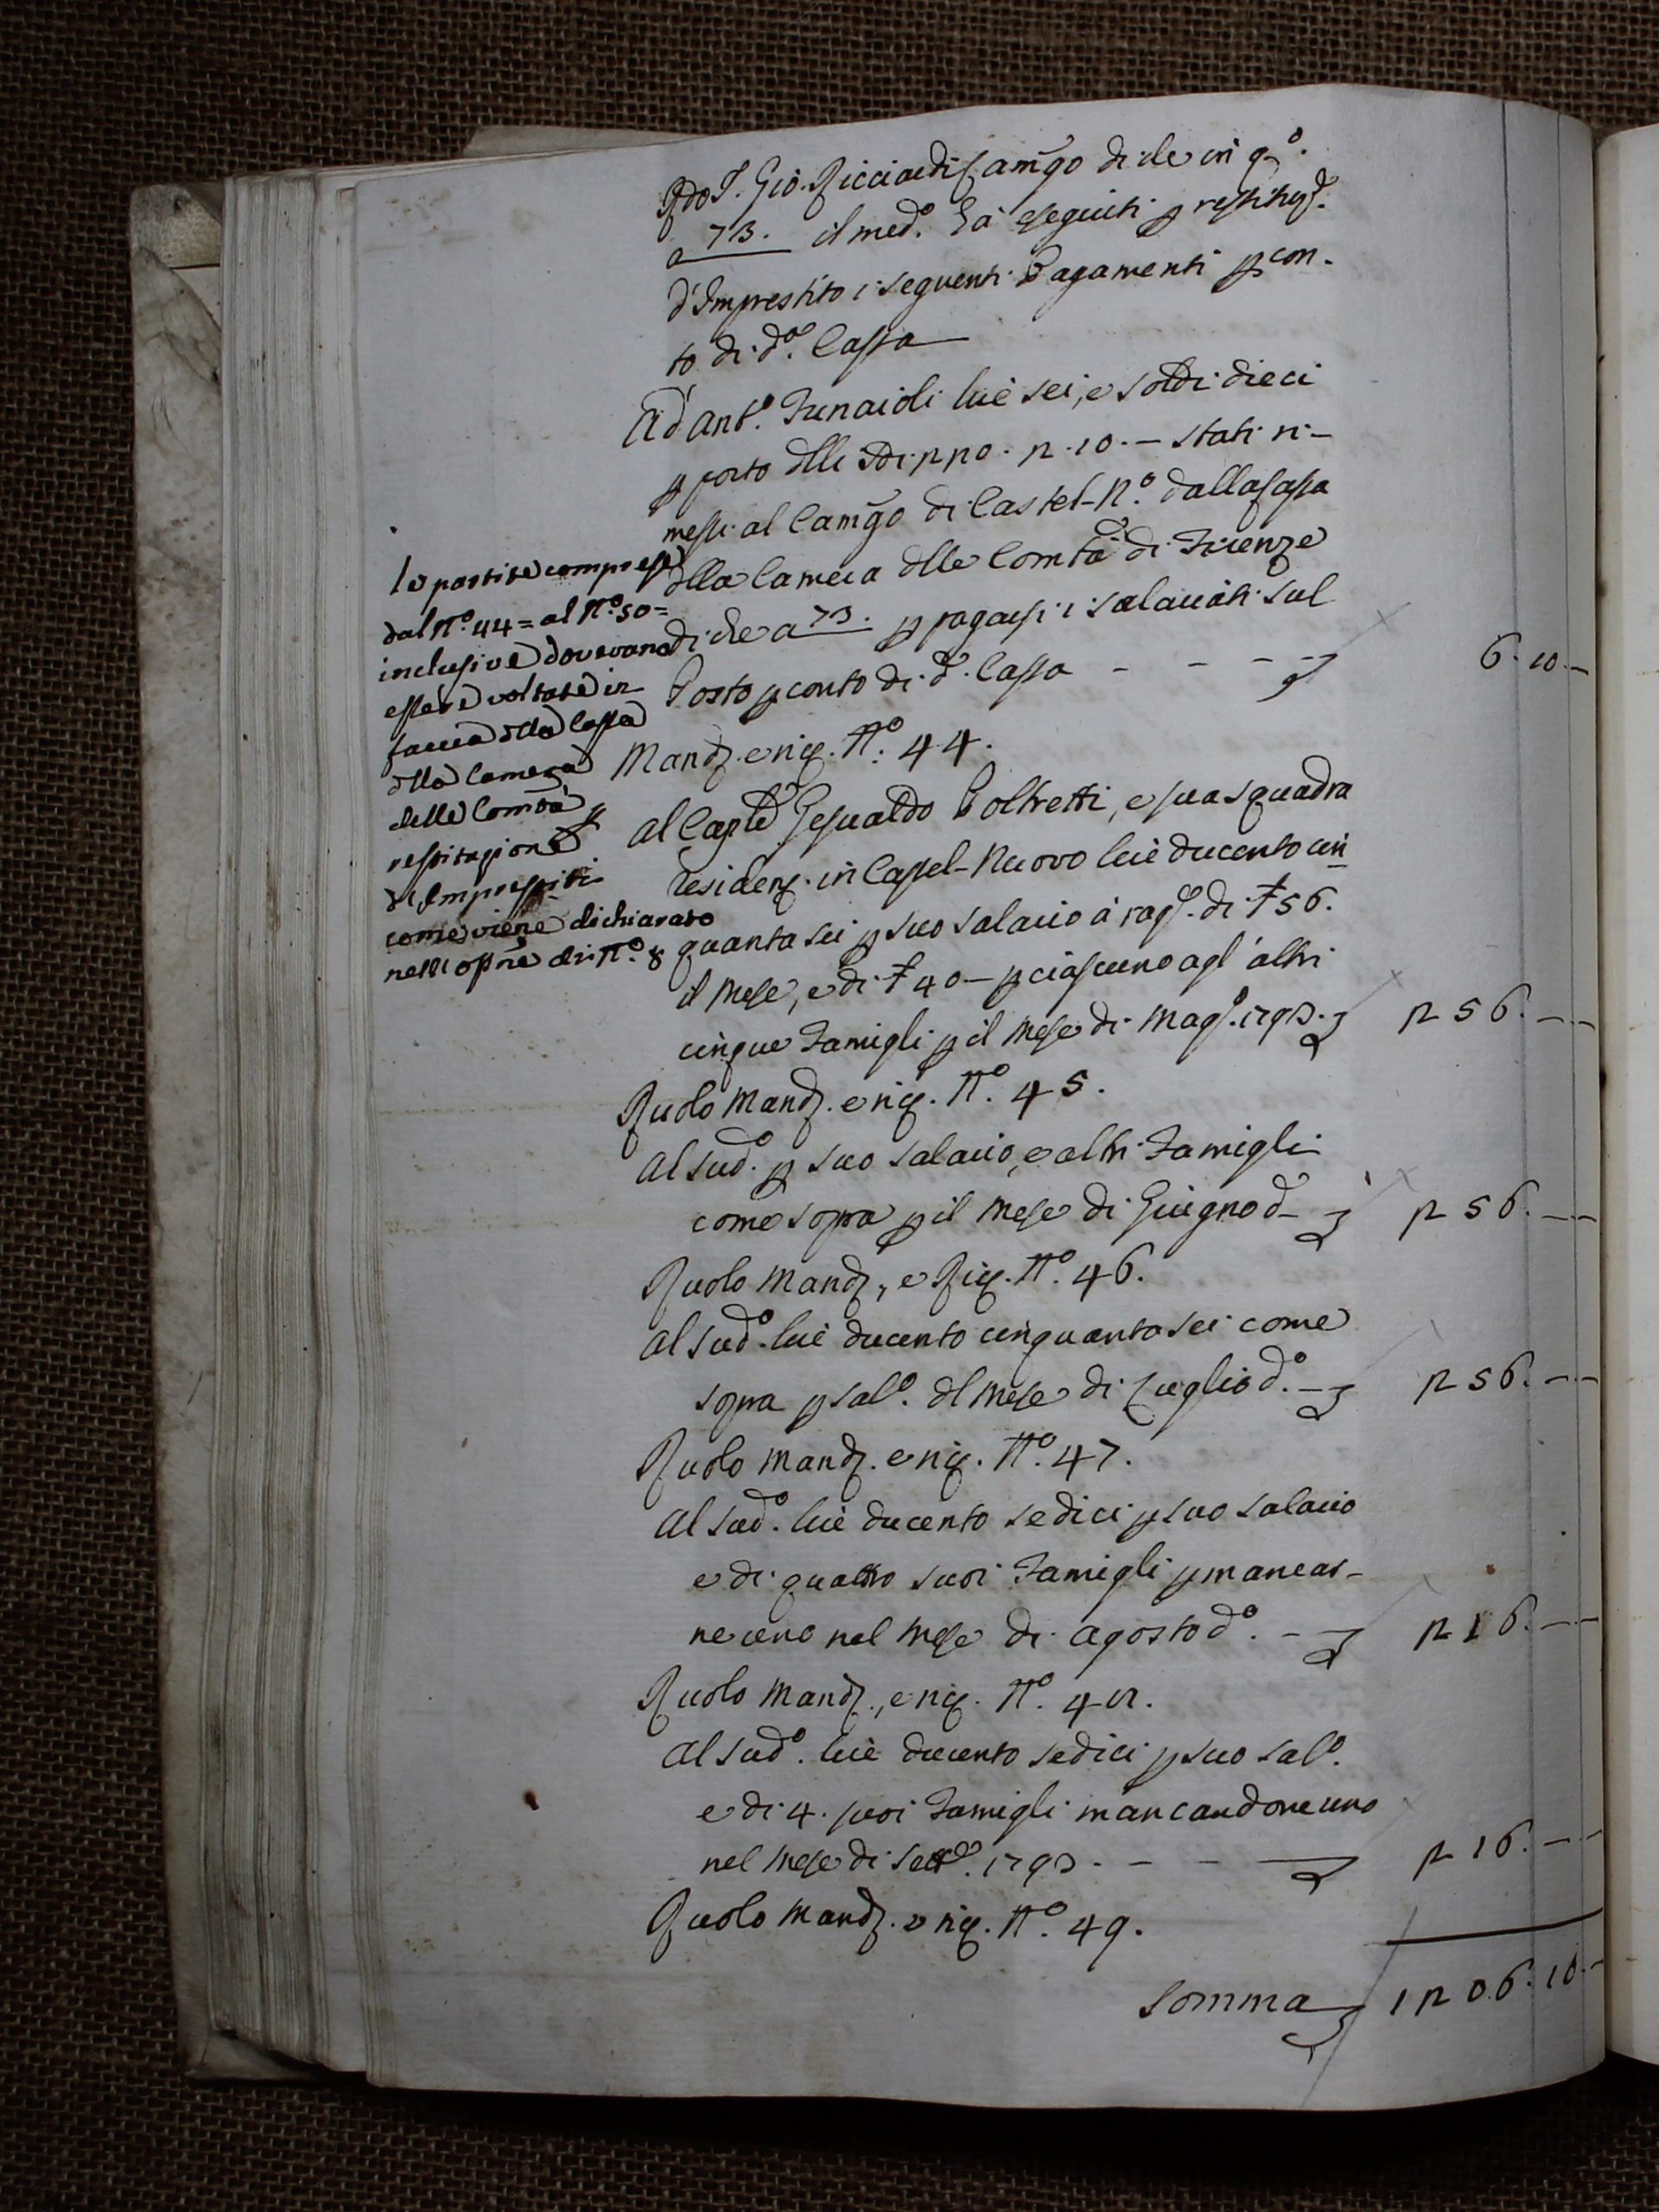 Rdo S. Gio. Ricciardi Camgo di de in qo.
a 73. il medo. ha eseguiti p restituz.e
d'Imprestito i seguenti Pagamenti p con-
to di da. Cassa
Ad Anto. Funaioli lire sei, e soldi dieci
p porto dlli 2010. stati ri-
messi al Camgo di Castel-No. dalla Cassa
dlla Camera dlle Comtà di Firenze
di che a 73. p pagarsi i salariati sul
Posto p conto di da. Cassa - - - - 6. 10. -
Mandt. e ric. No. 44.
Al Capte Gesualdo Poltretti, e sua squadra
residenz. in Castel-Nuovo lire ducento cin
quanta sei p suo salario à rage. di £ 56.
il Mese, e di £ 40 - p ciascuno agl'altri
cinque Famigli p il Mese di Mago. 1793. 256. - -
Ruolo Mandt. e ric. No. 45.
Al sudo. p suo salario, e altri Famigli
come sopra p il Mese di Giugno do - 256. - -
Ruolo Mandt., e Ric. No. 46.
Al sudo. lire ducento cinquanta sei come
sopra p salo. dl Mese di Luglio do. - 256. - -
Ruolo Mandt. e ric. No. 47.
Al sudo. lire ducento sedici p suo salario
e di quattro suoi Famigli p mancar-
ne uno nel Mese di Agosto do. - 216. - -
Ruolo Mandt., e ric. No. 48.
Al sudo. lire ducento sedici p suo salo.
e di 4. suoi Famigli mancandone uno
nel Mese di Sette. 1793. - - 216. - -
Ruolo Mandt. e ric. No. 49.
Somma 1206. 10. -
le partite comprese
dal No. 44 = al No. 50 =
inclusive dovevano
essere voltate in
faccia dlla Cassa
dlla Camera
delle Comtà p
restituzione
d'Imprestiti
come viene dichiarato
nelle di No. 8